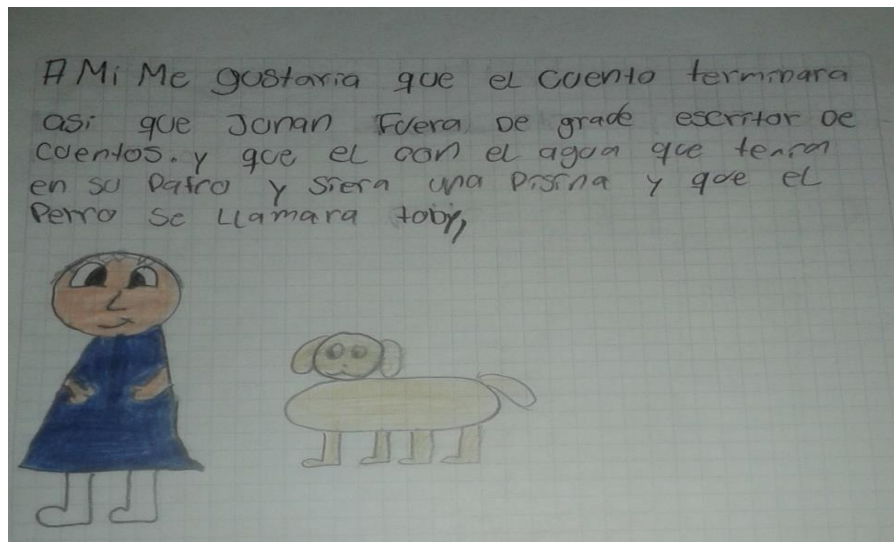 A Mi Me gustaria que el cuento terminara
asi que Jonan Fuera De grade escritor De
cuentos. y que el con el agua que tenia
en su Patio y siera una Pisina y que el
Perro se LLamara toby,